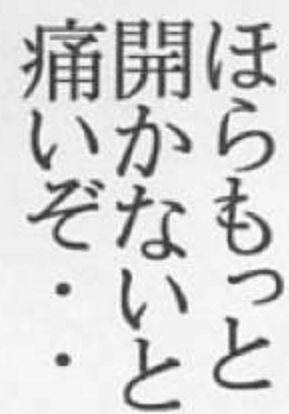 ほらもっと
開かないと
痛いぞ・・